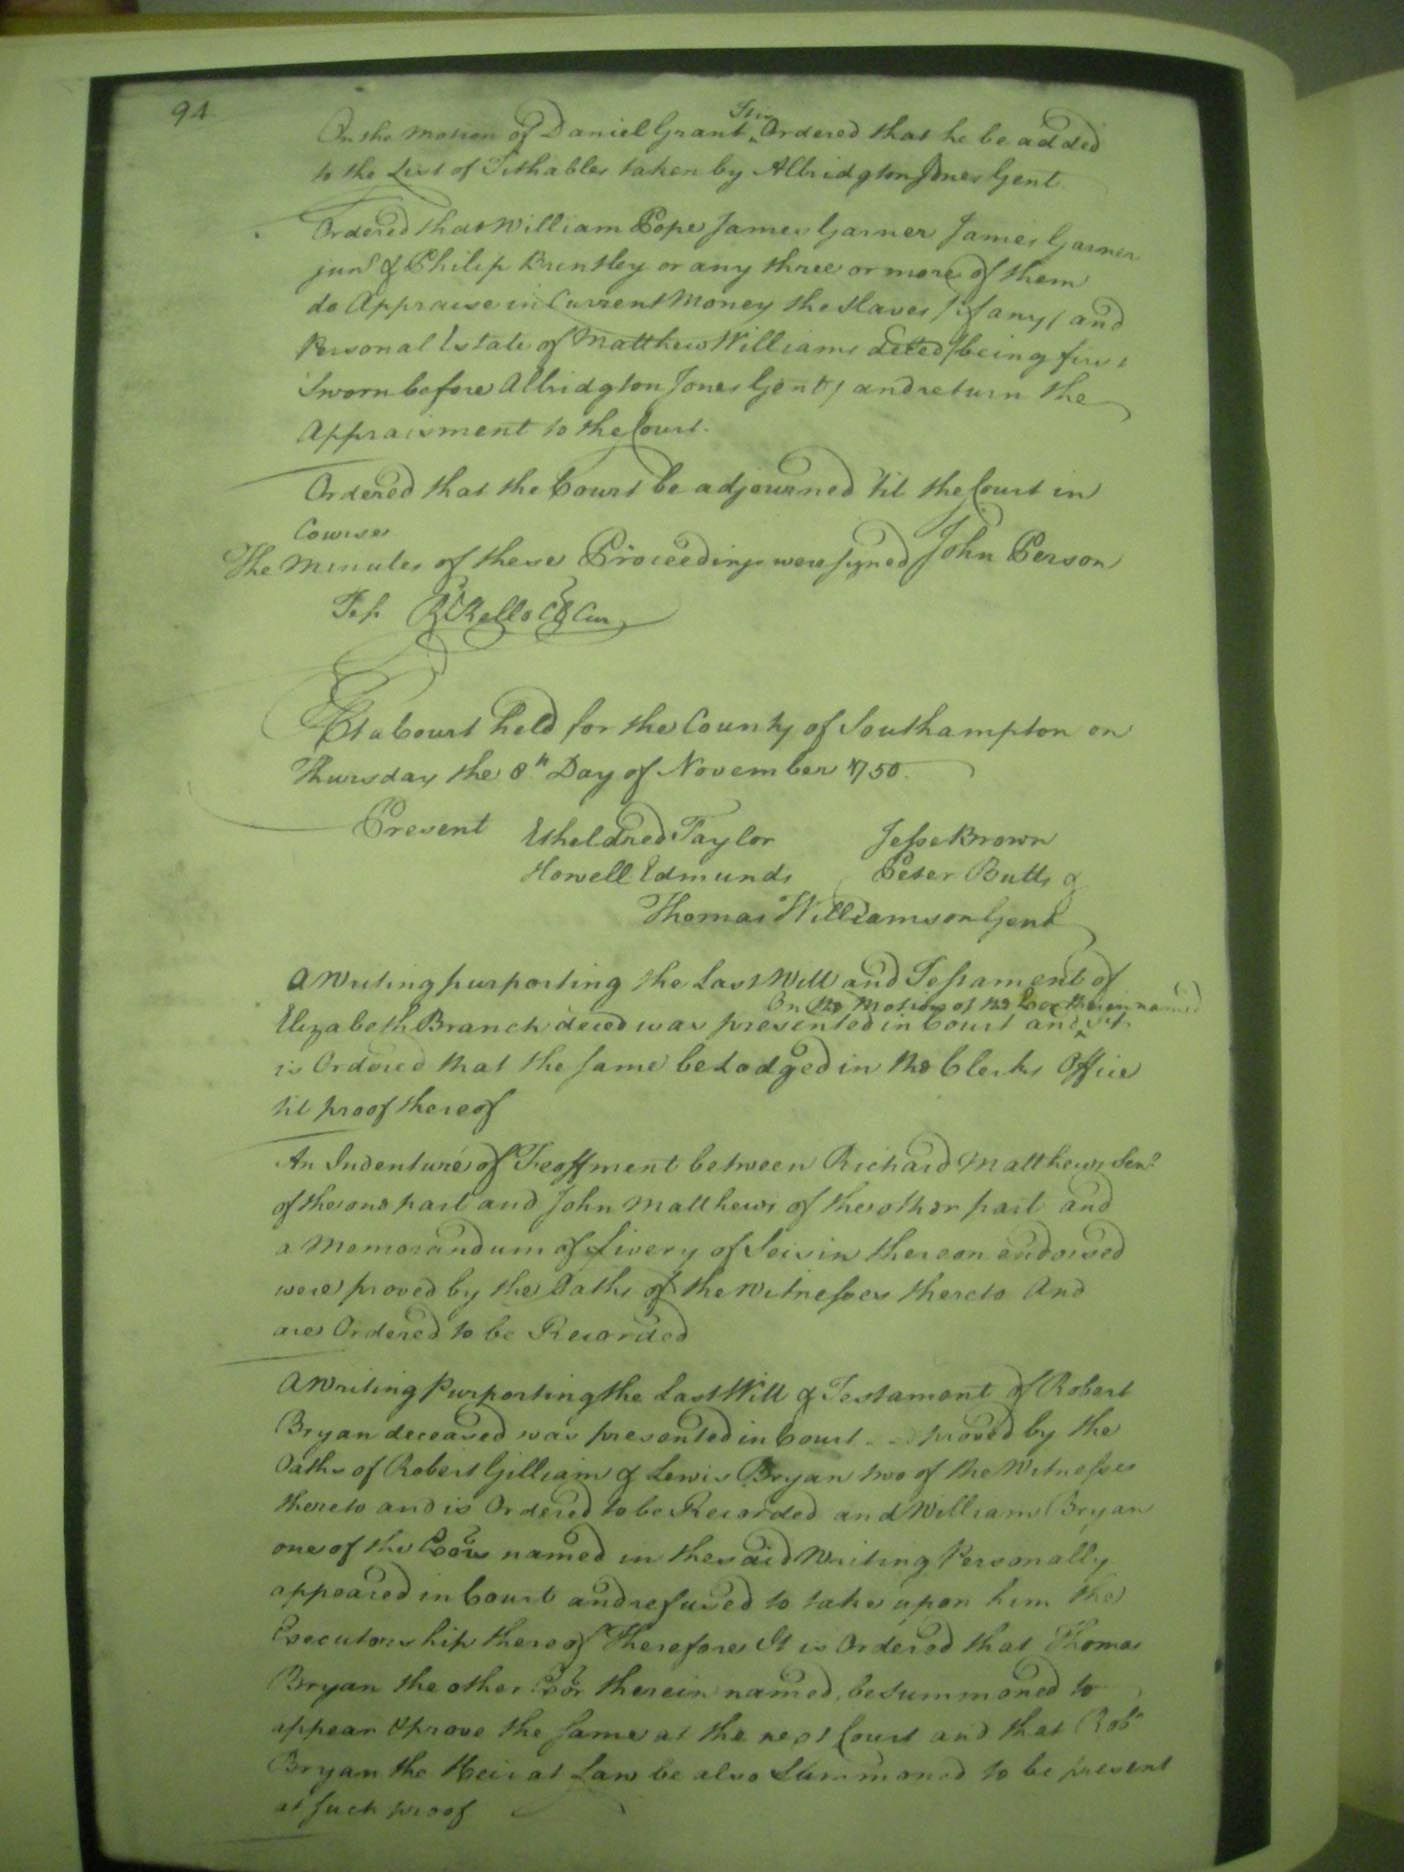 94
On the motion of Daniel Grant Itis Ordered that he be added
to the List of Tithables taken by Albridgton Jones Gent
Ordered that William Pope James Garner James Garner
junr & Philip Brintley or any three or more of them
do Appraise in Current Money the slaves (if any) and
Personal Estate of Matthew Williams deced (being first
Sworn before Albridgton Jones Gent) and return the
Appraisment to the Court.
Ordered that the Court be adjourned 'til the Court in
Course
The Minutes of these Proceedings were signed John Person
Test R Kello Cl Cur
At a Court held for the County of Southampton on
Thursday the 8th Day of November 1750.
Present Etheldred Taylor Jesse Brown
Howell Edmunds Peter Butts &
Thomas Williamson Gent
A Writing purporting the Last Will and Testament of
On the Motion of the Exr therein named
Elizabeth Branch deced was presented in Court and it
is Ordered that the same be Lodged in the Clerks Office
til proof thereof
An Indenture of Feoffment between Richard Matthews Senr
of the one part and John Matthews of the other part and
a Memorandum of Livery of Seisin thereon endorsed
were proved by the Oaths of the Witnesses thereto And
are Ordered to be Recorded
A Writing Purporting the Last Will & Testament of Robert
Bryan deceased was presented in Court proved by the
Oaths of Robert Gilliam & Lewis Bryan two of the Witnesses
thereto and is Ordered to be Recorded and William Bryan
one of the Exors named in the said Writing Personally
appeared in Court and refused to take upon him the
Executorship thereof Therefore It is Ordered that Thomas
Bryan the other Exor therein named, be summoned to
appear & prove the same at the next Court and that Robt
Bryan the Heir at Law be also Summoned to be present
at such proof